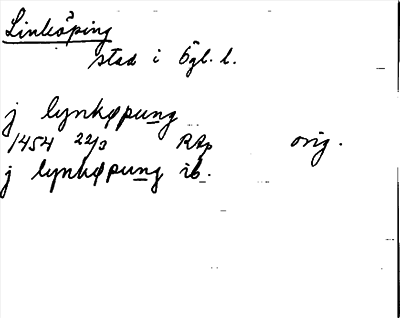 Linköping
stad i Ögl. l.
j lynkøpung
1454 22/3 RAp orig.
j lynkøpung ib.